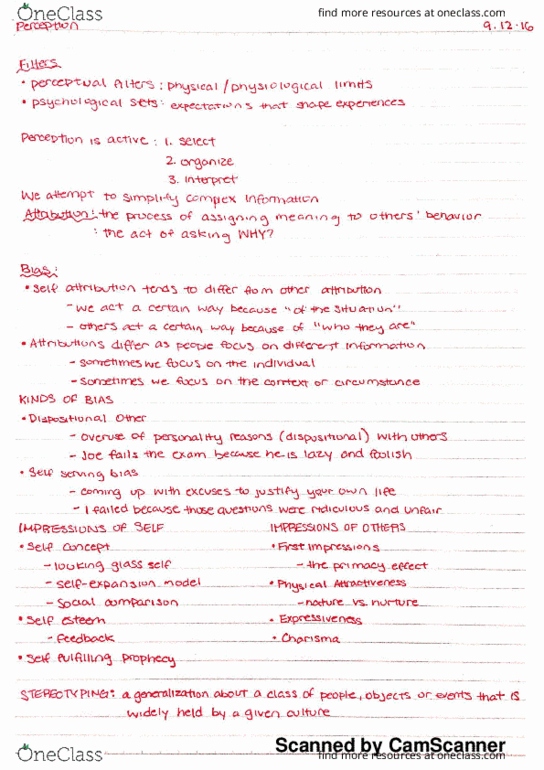 OneClass
find more resources at oneclass.com
Perception 9.12.16
Filters
• perceptual filters: physical/physiological limits
• psychological sets: expectations that shape experiences
Perception is active: 1. select
2. organize
3. interpret
We attempt to simplify complex information
Attribution: the process of assigning meaning to others' behavior
: the act of asking WHY?
Bias:
• Self attribution tends to differ from other attribution
- we act a certain way because "of the situation"
- others act a certain way because of "who they are"
• Attributions differ as people focus on different information
- sometimes we focus on the individual
- sometimes we focus on the context or circumstance
KINDS OF BIAS
• Dispositional Other
- overuse of personality reasons (dispositional) with others
- Joe fails the exam because he is lazy and foolish
• Self serving bias
- coming up with excuses to justify your own life
- I failed because those questions were ridiculous and unfair
IMPRESSIONS OF SELF IMPRESSIONS OF OTHERS
• Self concept • First Impressions
- looking glass self - the primacy effect
- self-expansion model • Physical Attractiveness
- Social comparison - nature vs. nurture
• Self esteem • Expressiveness
- feedback • Charisma
• Self fulfilling prophecy
STEREOTYPING: a generalization about a class of people, objects or events that is
widely held by a given culture
Scanned by CamScanner
OneClass
find more resources at oneclass.com